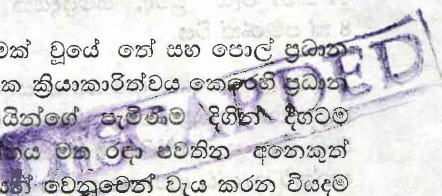 මක් වූයේ තේ සහ පොල් ප්‍රධාන
ක ක්‍රියාකාරිත්වය කෙරෙහි ප්‍රධාන
යින්ගේ පැමිණීම දිගින් දිගටම
මත රඳා පවතින අනෙකුත්
වෙනුවෙන් වැය කරන වියදම